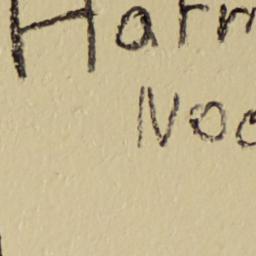 Harr
Noo